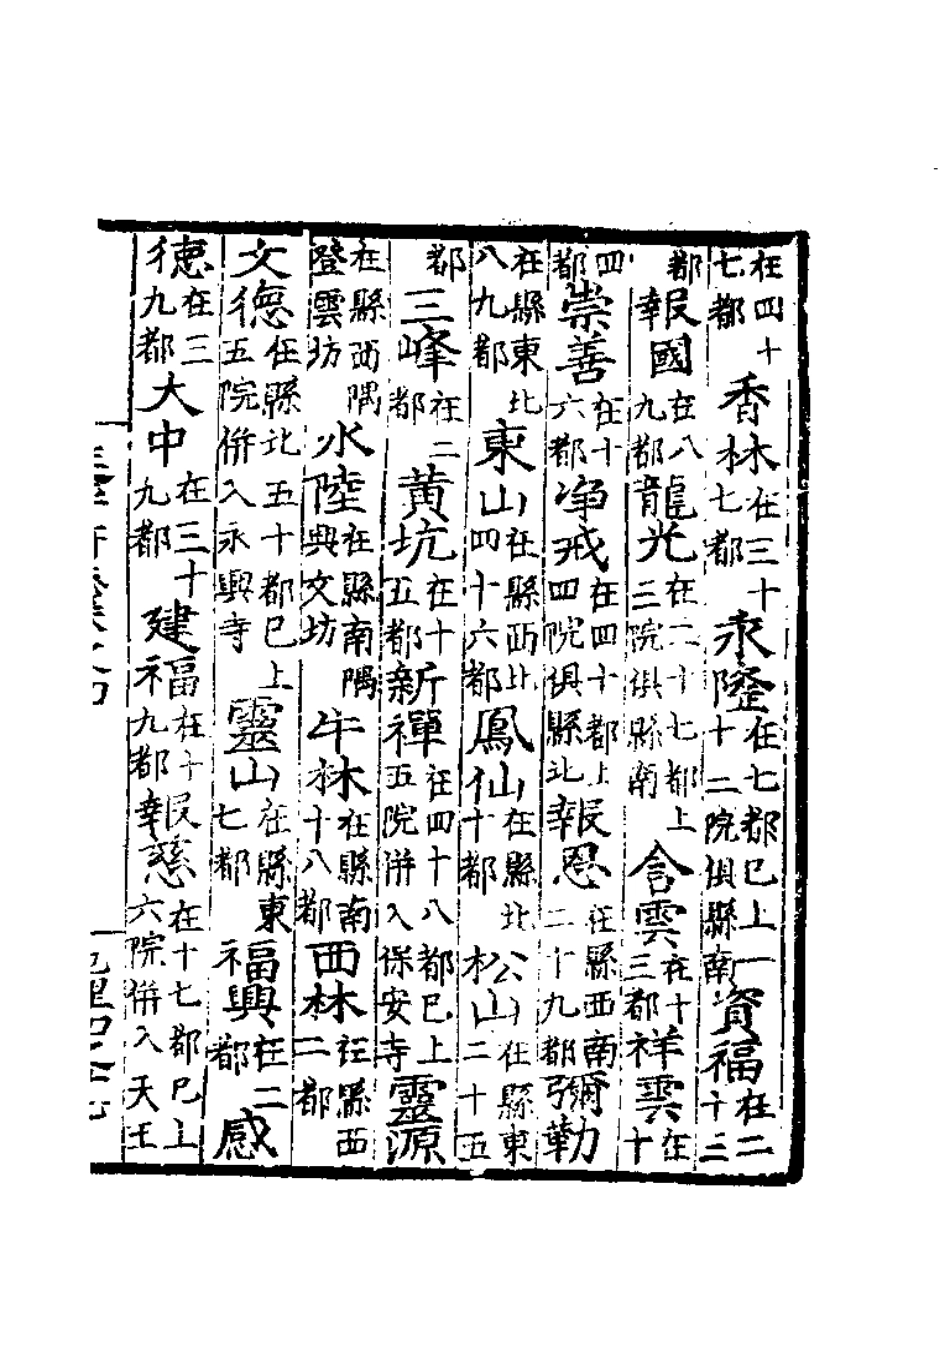 在四十七都香林在三十七都永隆在七都已上一十二院俱縣南資福在二十三
都報國在八九都龍光在二十七都上三院俱縣南含雲在十三都祥雲在十
四都崇善在十六都净戒在四十都上四院俱縣北報恩在縣西南二十九都彌勒
在縣東北八九都東山在縣西北四十六都鳳仙在縣北十都松山在縣東二十五
都三峰在二都黄坑在十五都新禪在四十八都已上五院併入保安寺靈源
在縣西隅登雲坊水陸在縣南隅興文坊牛林在縣南十八都西林在縣西二都
文德在縣北五十都已上五院併入永興寺靈山在縣東七都福興在二都感
德在三九都大中在三十九都建福在十九都報慈在十七都已上六院併入天王